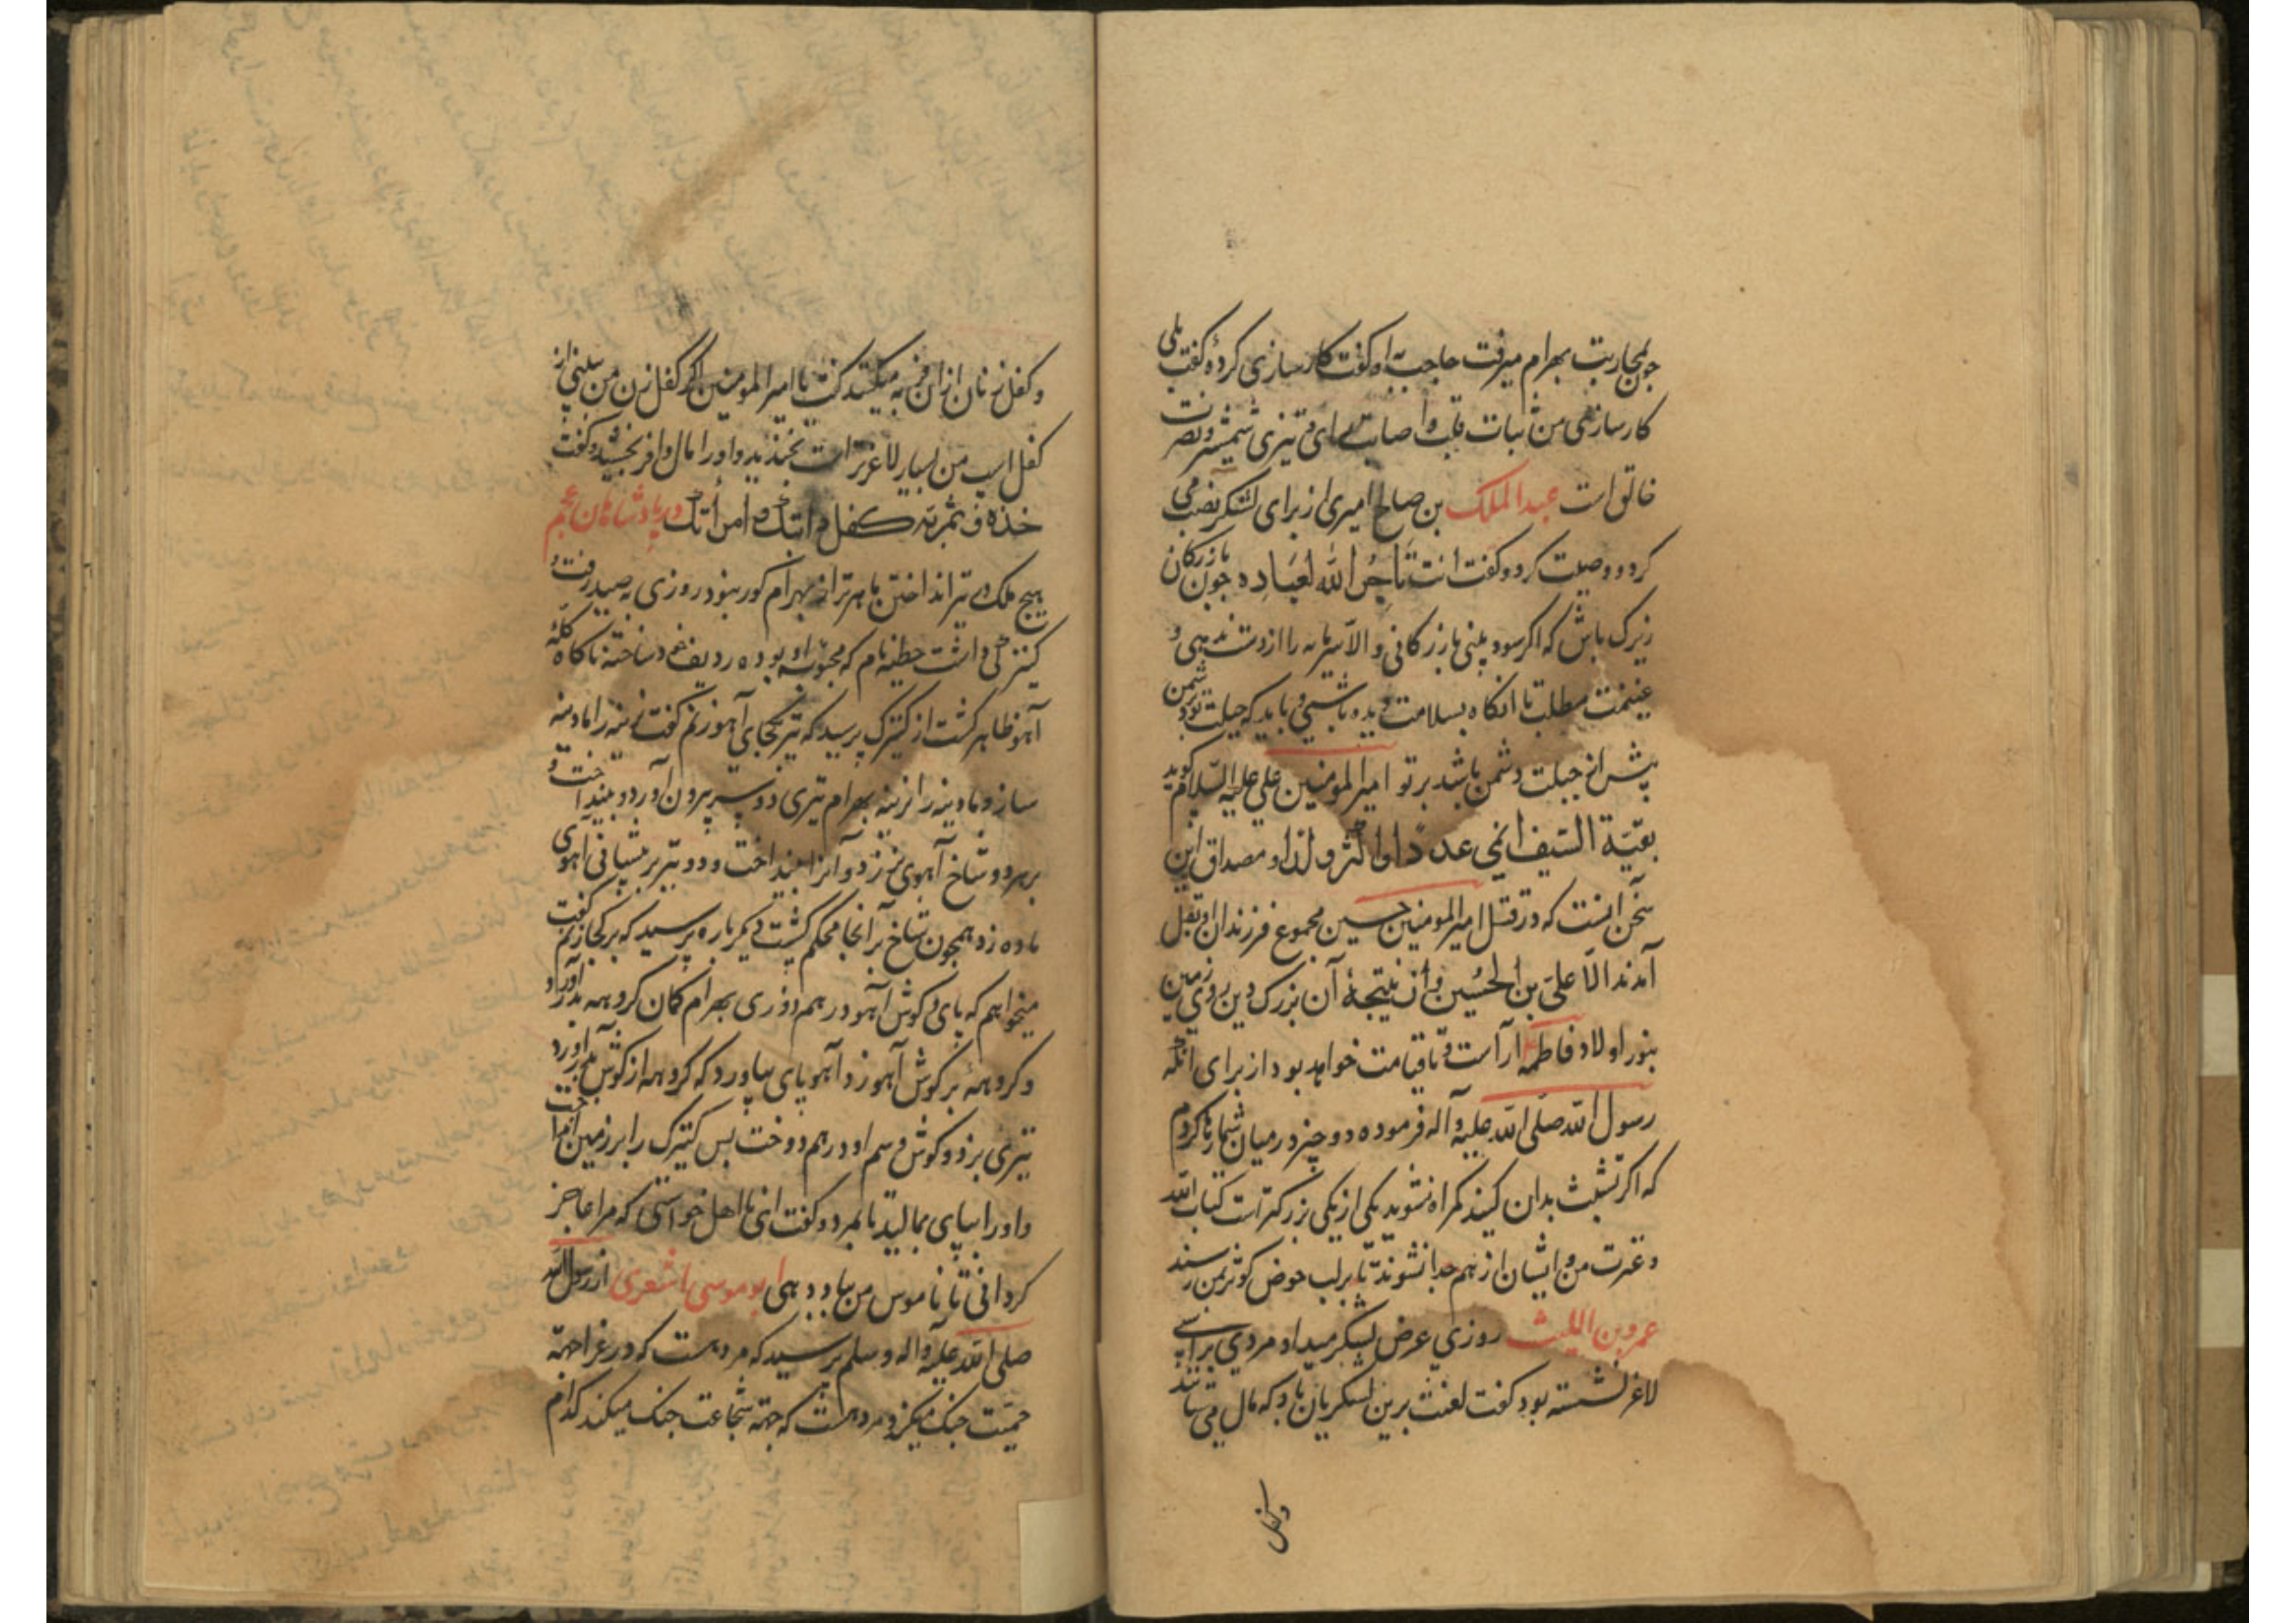 چون بمحاربت بهرام میرفت حاجب او گفت کارسازی کردهٔ گفت بلی
کارسازی من ثبات قلب و اصابت رای و تیزی شمشیر و نصرت
خالق است عبدالملک بن صالح امیری از برای لشکر نصب می
کرد و وصیت کرد و گفت انت تاجر الله لعباده چون بازرکان
زیرک باش که اکر سود بینی بازرکانی و الا سرمایه را از دست ندهی و
غنیمت مطلب تا انکاه بسلامت باشی و باید که حیلت تو بر دشمن
پیش از حیلت دشمن باشد بر تو امیرالمومنین علی علیه السلام کوید
بقیة السیف انمی عددا و اکثر ولدا و مصداق این
سخن انست که در قتل امیرالمومنین حسین مجموع فرزندان او بقتل
آمدند الا علی بن الحسین و از نتیجهٔ آن بزرک دین روی زمین
بنور اولاد فاطمه آراست و تا قیامت خواهد بود از برای انکه
رسول الله صلی الله علیه و آله فرموده دو چیز در میان شما رها کردم
که اکر تشبث بدان کنید کمراه نشوید یکی از یکی بزرکتر است کتاب الله
و عترت من و ایشان از هم جدا نشوند تا بر لب حوض کوثر بمن رسند
عمرو بن اللیث روزی عرض لشکر میداد مردی بر اسبی
لاغر نشسته بود گفت لعنت برین لشکریان باد که مال می ستانند
و کفل
و کفل زنان از آن فربه میکنند گفت یا امیرالمومنین اکر کفل زن من ببینی از
کفل اسب من بسیار لاغرتر است بخندید و او را مال وافر بخشید و گفت
خذه فثمن به کفل دابتک و امرأتک در پادشاهان عجم
هیچ ملک در تیر انداختن ماهرتر از بهرام کور نبود روزی به صید رفت و
کنیزکی داشت حظیه نام که محبوبه او بوده ردیف خود ساخته ناکاه کلهٔ
آهو ظاهر کشت از کنیزک پرسید که تیر بکجای آهو زنم گفت نرینه را مادینه
ساز و مادینه را نرینه بهرام تیری دو سر بیرون آورد و بینداخت و
بر هر دو شاخ آهوی نر زد و آنرا بینداخت و دو تیر بر پیشانی آهوی
ماده زد همچون شاخ بر آنجا محکم کشت دیکر باره پرسید که بر کجا زنم گفت
میخواهم که پای و کوش آهو در هم دوزی بهرام کمان کروهه بدر آورد
و کروههٔ بر کوش آهو زد آهو پای بیاورد که کروهه از کوش بدر آورد
تیری بزد و کوش و سم او در هم دوخت پس کنیزک را بر زمین انداخت
و او را بپای بمالید تا بمرد و گفت ای نااهل خواستی که مرا عاجز
کردانی تا ناموس من بباد دهی ابو موسی اشعری از رسول الله
صلی الله علیه و اله و سلم پرسید که مرد هست که در غزا جهة
حمیت جنک میکند و مرد هست که جهة شجاعت جنک میکند کدام